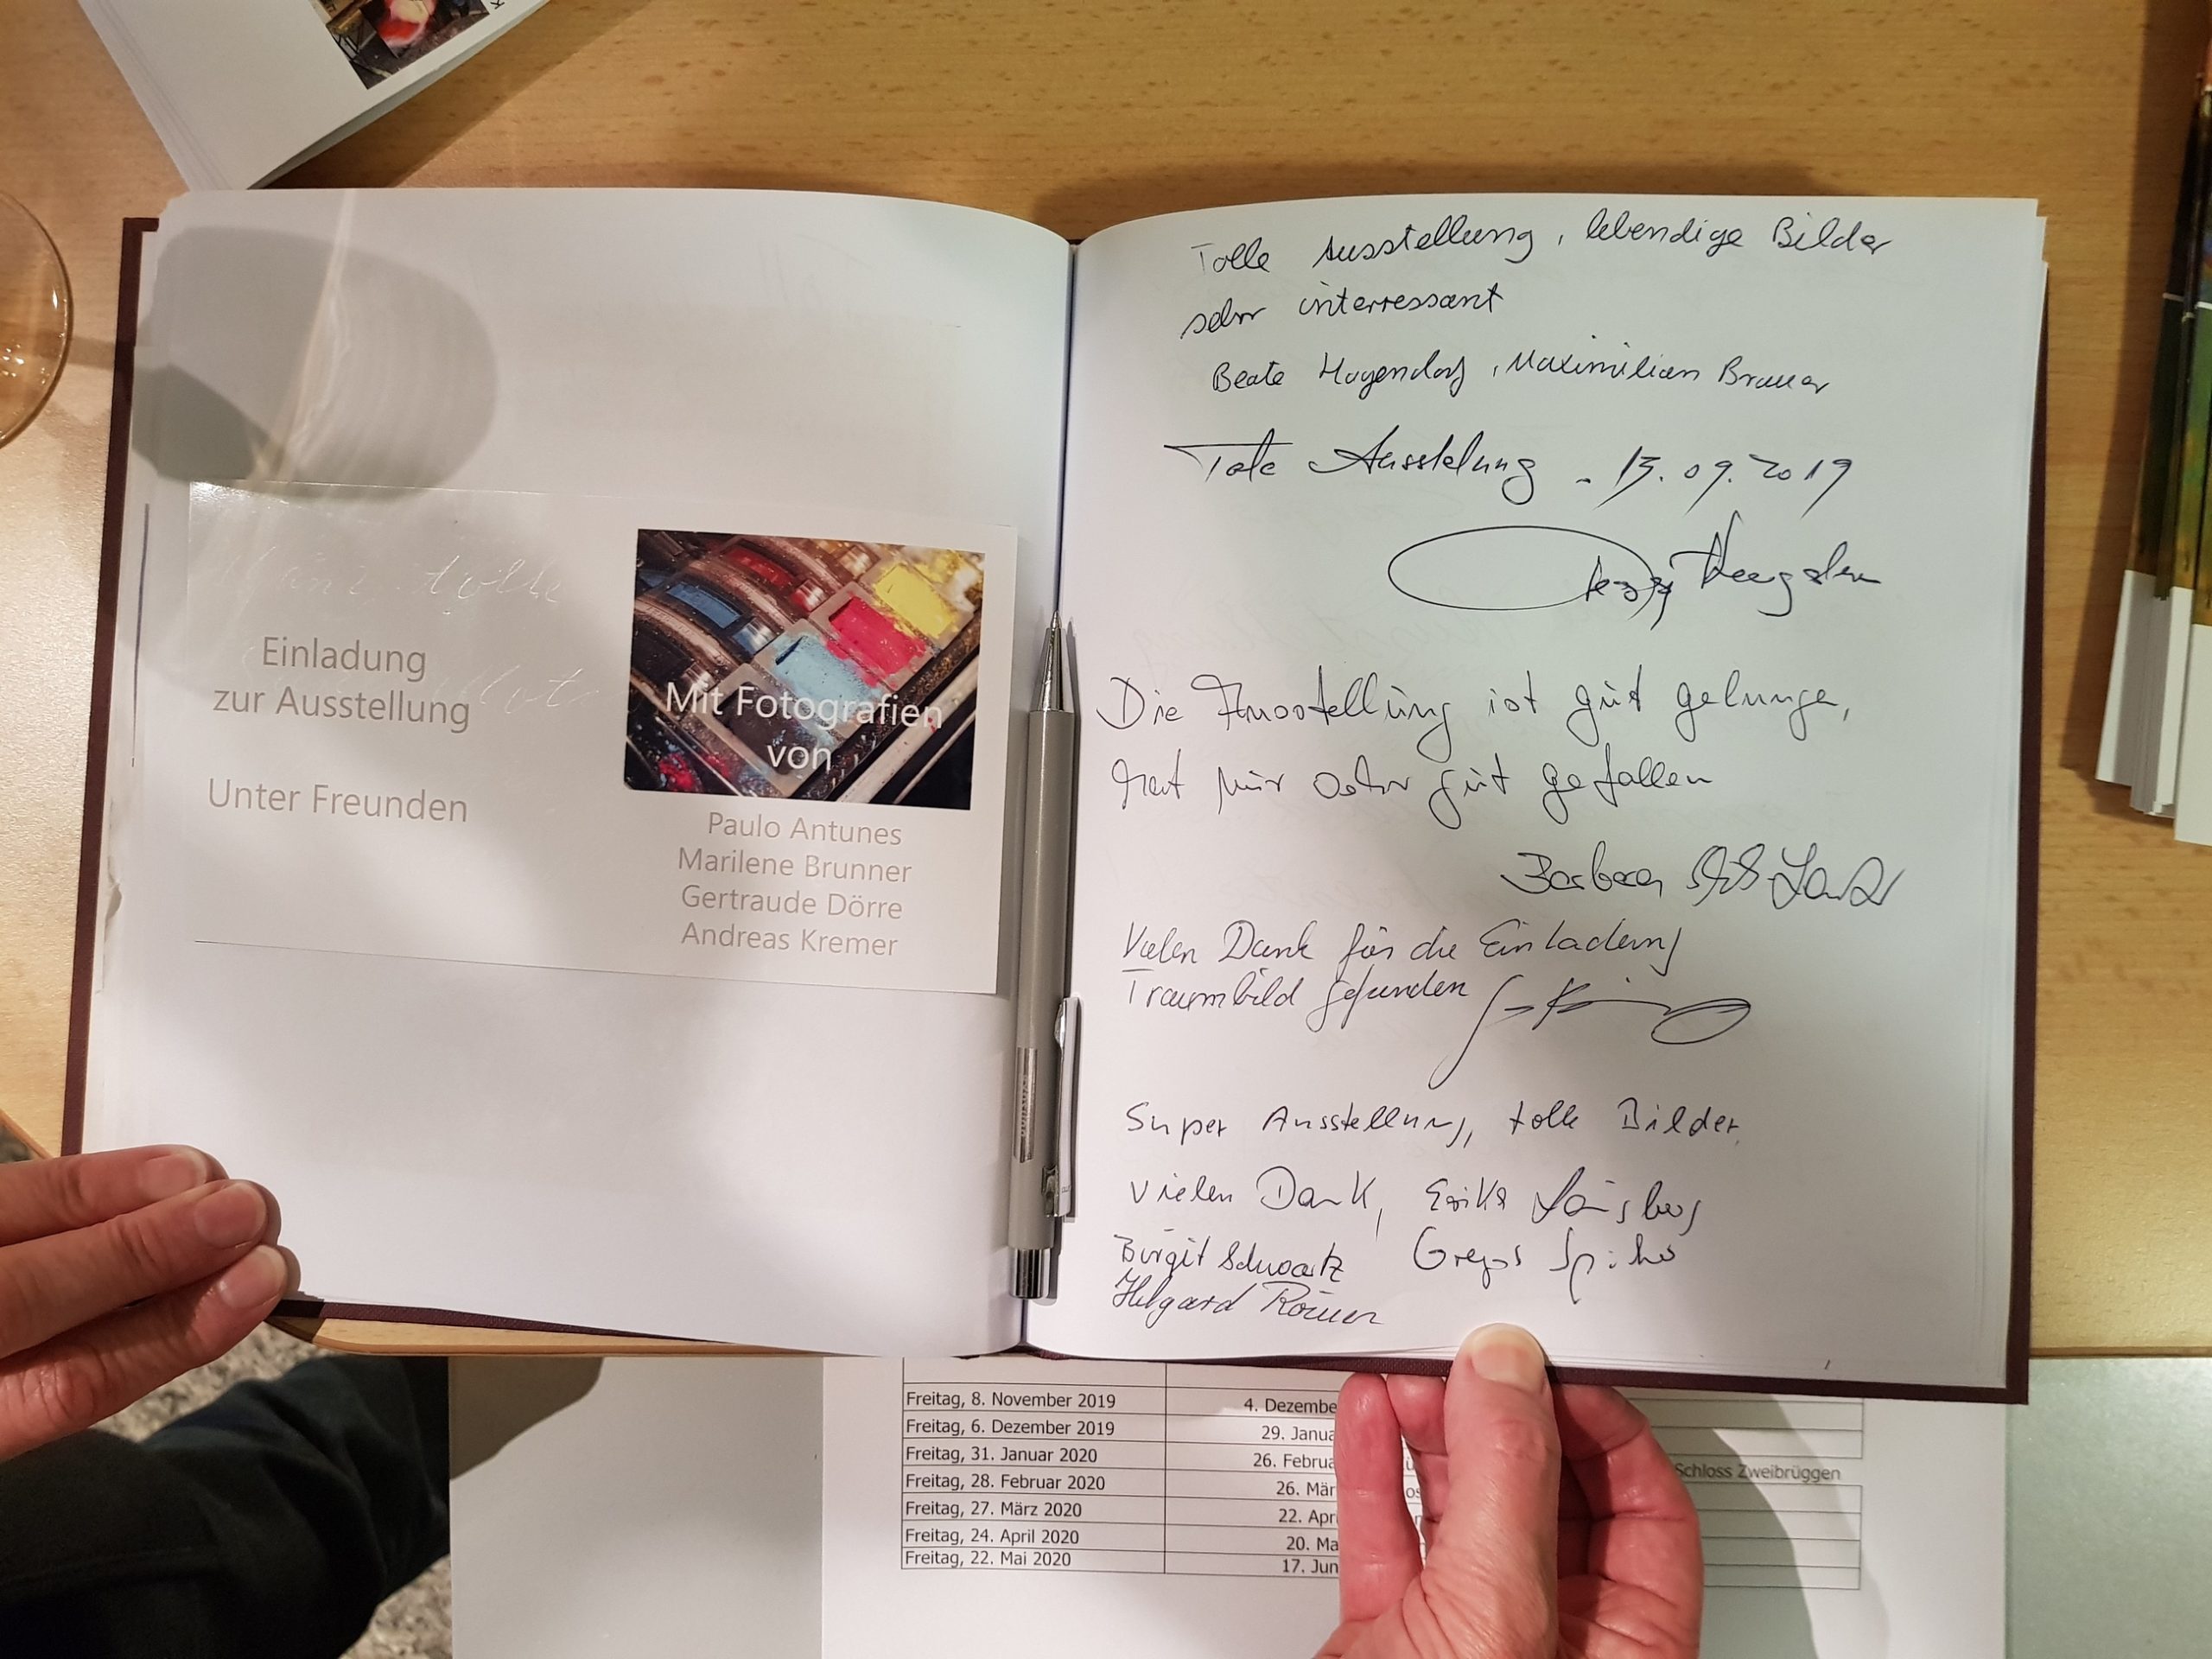 Einladung
zur Ausstellung
Unter Freunden
Mit Fotografien
von
Paulo Antunes
Marilene Brunner
Gertraude Dörre
Andreas Kremer
Tolle Ausstellung, lebendige Bilder
sehr interressant
Beate Hagendorf, Maximilian Brauer
Ausstelung - 13.09.2019
Die Ausstellung ist gut gelungen,
hat mir sehr gut gefallen
Barbara
Vielen Dank für die Einladung
Traumbild gefunden
Super Ausstellung, tolle Bilder
vielen Dank, Erika
Birgit Schwartz Gregor
Helgard Römer
Freitag, 8. November 2019 4. Dezembe
Freitag, 6. Dezember 2019 29. Janua
Freitag, 31. Januar 2020 26. Februa
Schloss Zweibrüggen
Freitag, 28. Februar 2020 26. Mär
Freitag, 27. März 2020 22. Apr
Freitag, 24. April 2020 20. Ma
Freitag, 22. Mai 2020 17. Jun